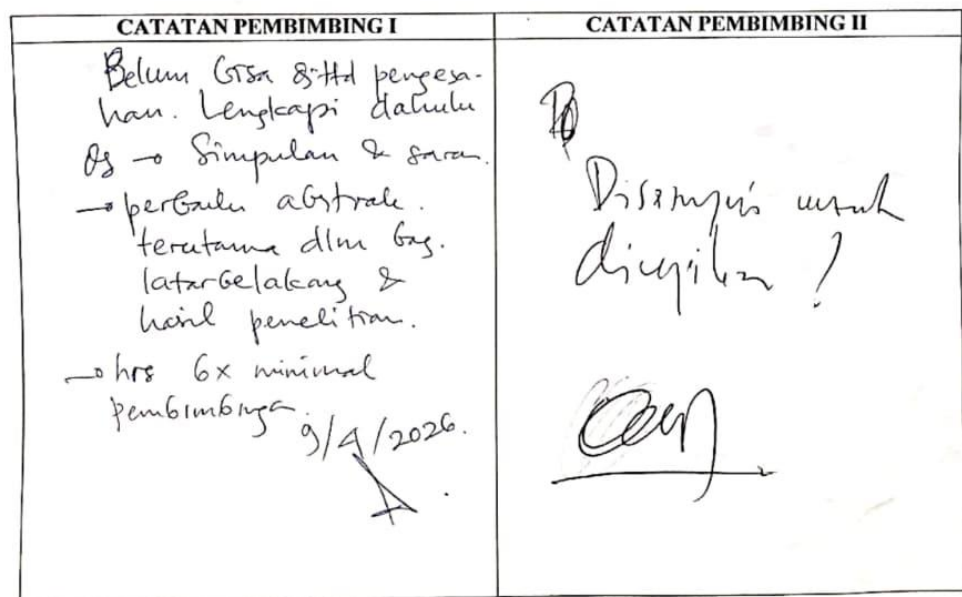 CATATAN PEMBIMBING I
Belum bisa dittd pengesa-
han. Lengkapi dahulu
dg → Simpulan & saran.
→ perbaiki abstrak.
terutama dlm bag.
latarbelakang &
hasil penelitian.
→ hrs 6x minimal
pembimbinga
9/4/2026.
CATATAN PEMBIMBING II
Disetujui untuk
diujikan !